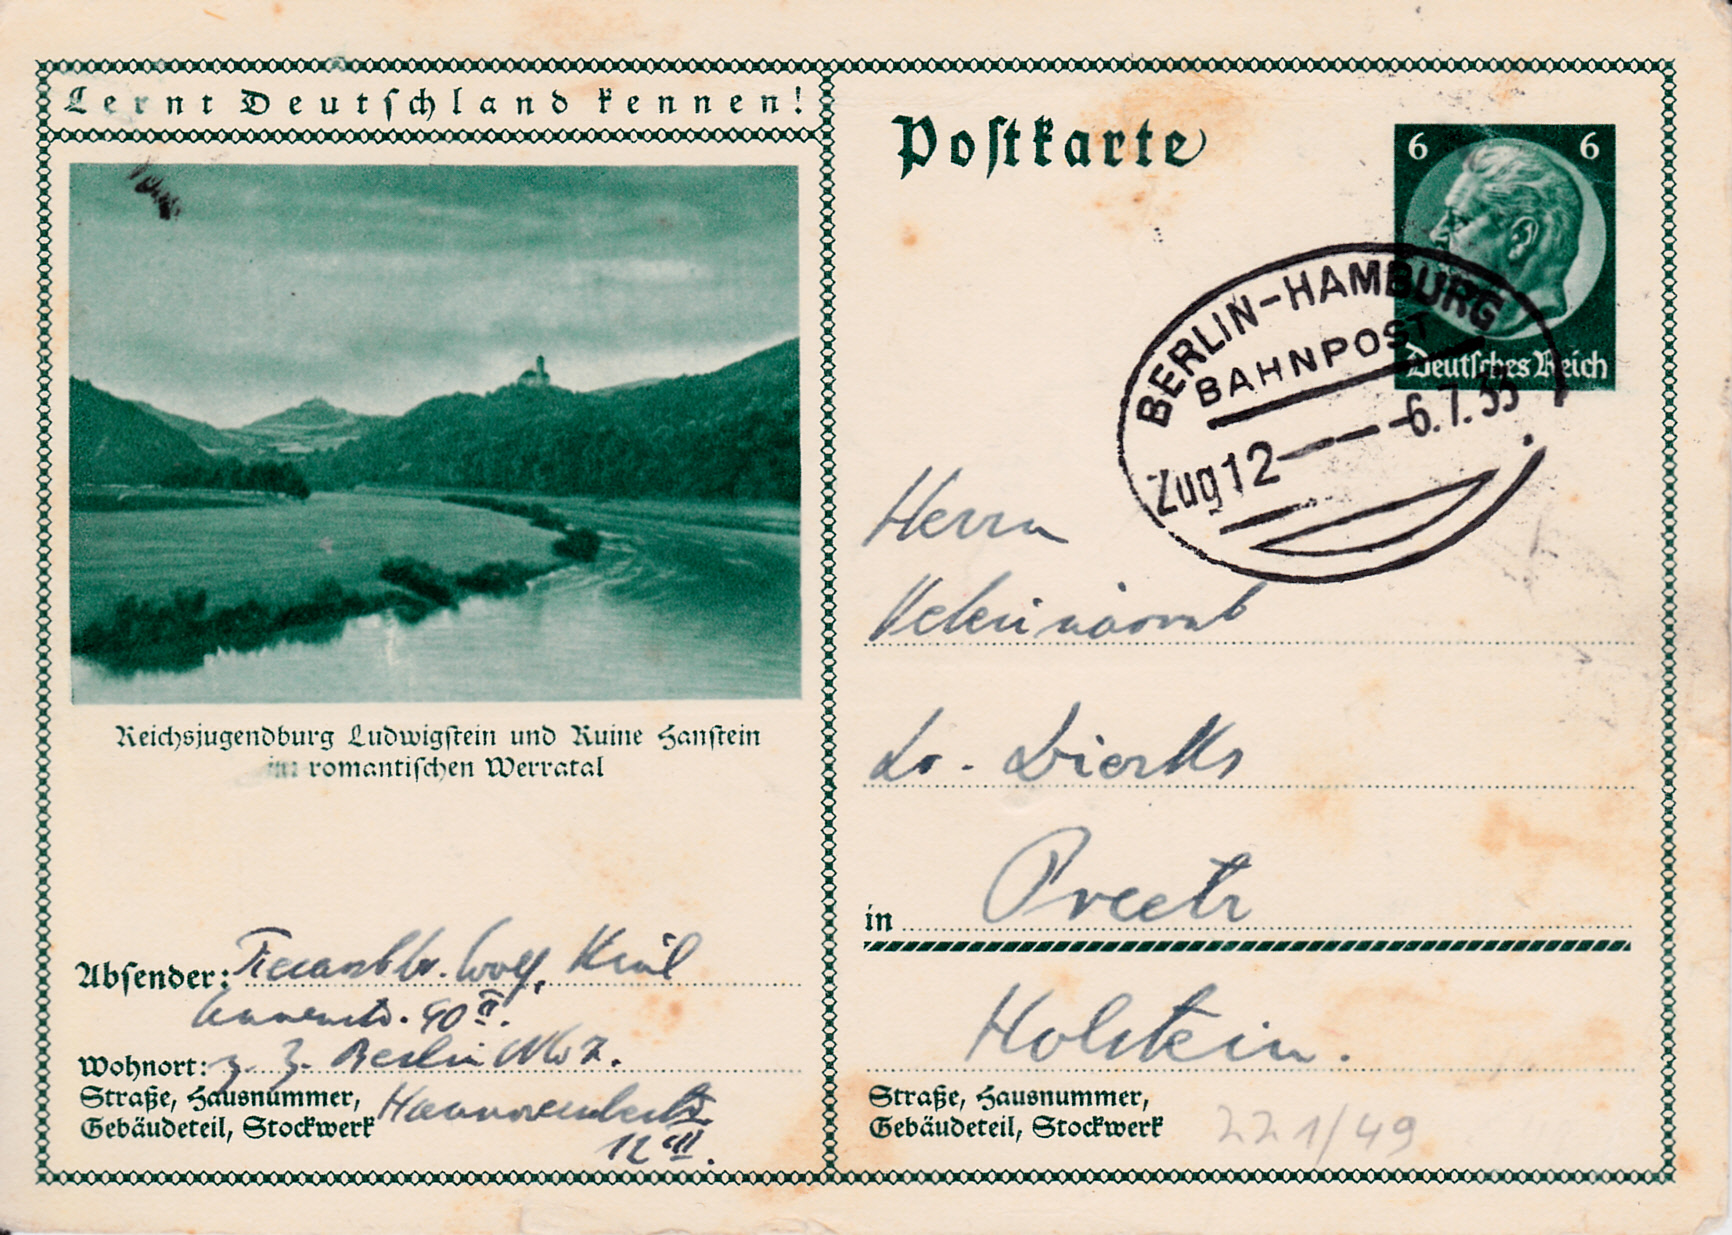 Lernt Deutschland kennen!
Reichsjugendburg Ludwigstein und Ruine Hanstein
im romantischen Werratal
Absender: Wolf, Kiel
40 II.
Wohnort: z. Z. Berlin NW 7.
Straße, Hausnummer,
Gebäudeteil, Stockwerk
12 III.
Postkarte
6 6
Deutsches Reich
BERLIN-HAMBURG
BAHNPOST
Zug 12 -6.7.35
Herrn
Veterinärrat
Dr. Dierks
in Preetz
Holstein.
Straße, Hausnummer,
Gebäudeteil, Stockwerk
221/49